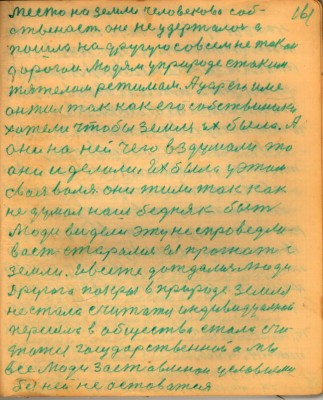 161
место на земли человеково соб-
ственост оне неудержалос а
пошла на другую совсем не такой
дорогой людям уприроде с таким
тяжолам режимам. Ударение
он жил так как его собственики
хотели чтобы земля их была. А
они на ней чего вздумали это
они и делоли. Их была у этом
своя воля. они жили так как
не думал наш бедняк быт
Люди видели эту неспроведло-
васт старалися прогнат с
земли. Ивсеже дождалися люди
другого поворы в природе. Земля
не стала считатся индивидуалной
перешла в общество стала счи-
татся государственной а мы
все люди заставлиной условием
без ней не остоватся